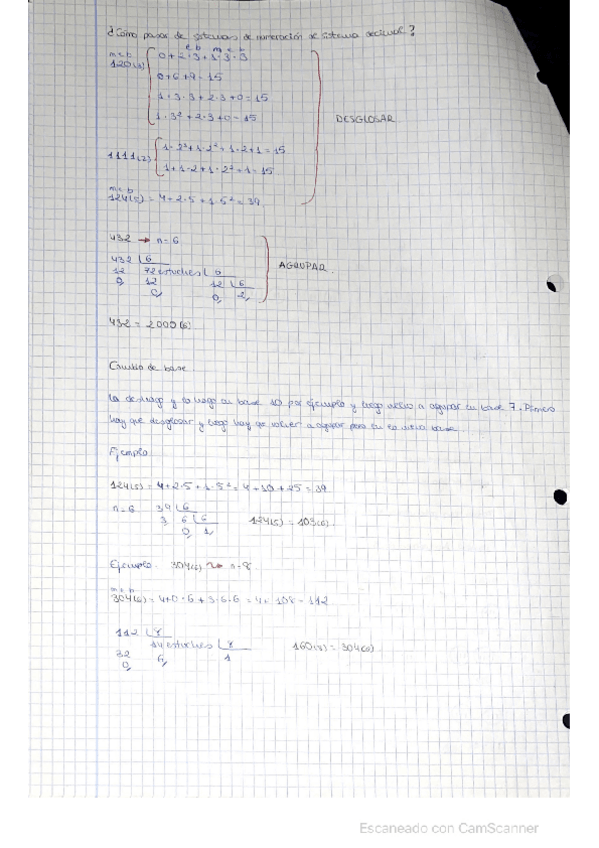 ¿Cómo pasar de sistemas de numeración de sistema decimal?
m e b
120(3)
e b m e b
0+2·3+1·3·3
0+6+9=15
1·3·3+2·3+0=15
1·3²+2·3+0=15
DESGLOSAR
1111(2)
1·2³+1·2²+1·2+1=15
1+1·2+1·2²+1=15
m e b
124(5) = 4+2·5+1·5² = 39
432 → n=6
432 6
12 72 estuches 6
0 12 12 6
0 0 2
AGRUPAR
432 = 2000(6)
Cambio de base
y lo hago en base 10 por ejemplo y luego a agrupar en base 7. Primero
hay que desglosar y luego hay que volver a agrupar para en base.
Ejemplo
124(5) = 4+2·5+1·5² = 4+10+25 = 39
n=6 39 6
3 6 6
0 1
124(5) = 103(6)
Ejemplo. 304(6) n=8
m e b
304(6) = 4+0·6+3·6·6 = 4+108 = 112
112 8
14 estuches 8
32 6 1
0
160(8) = 304(6)
Escaneado con CamScanner